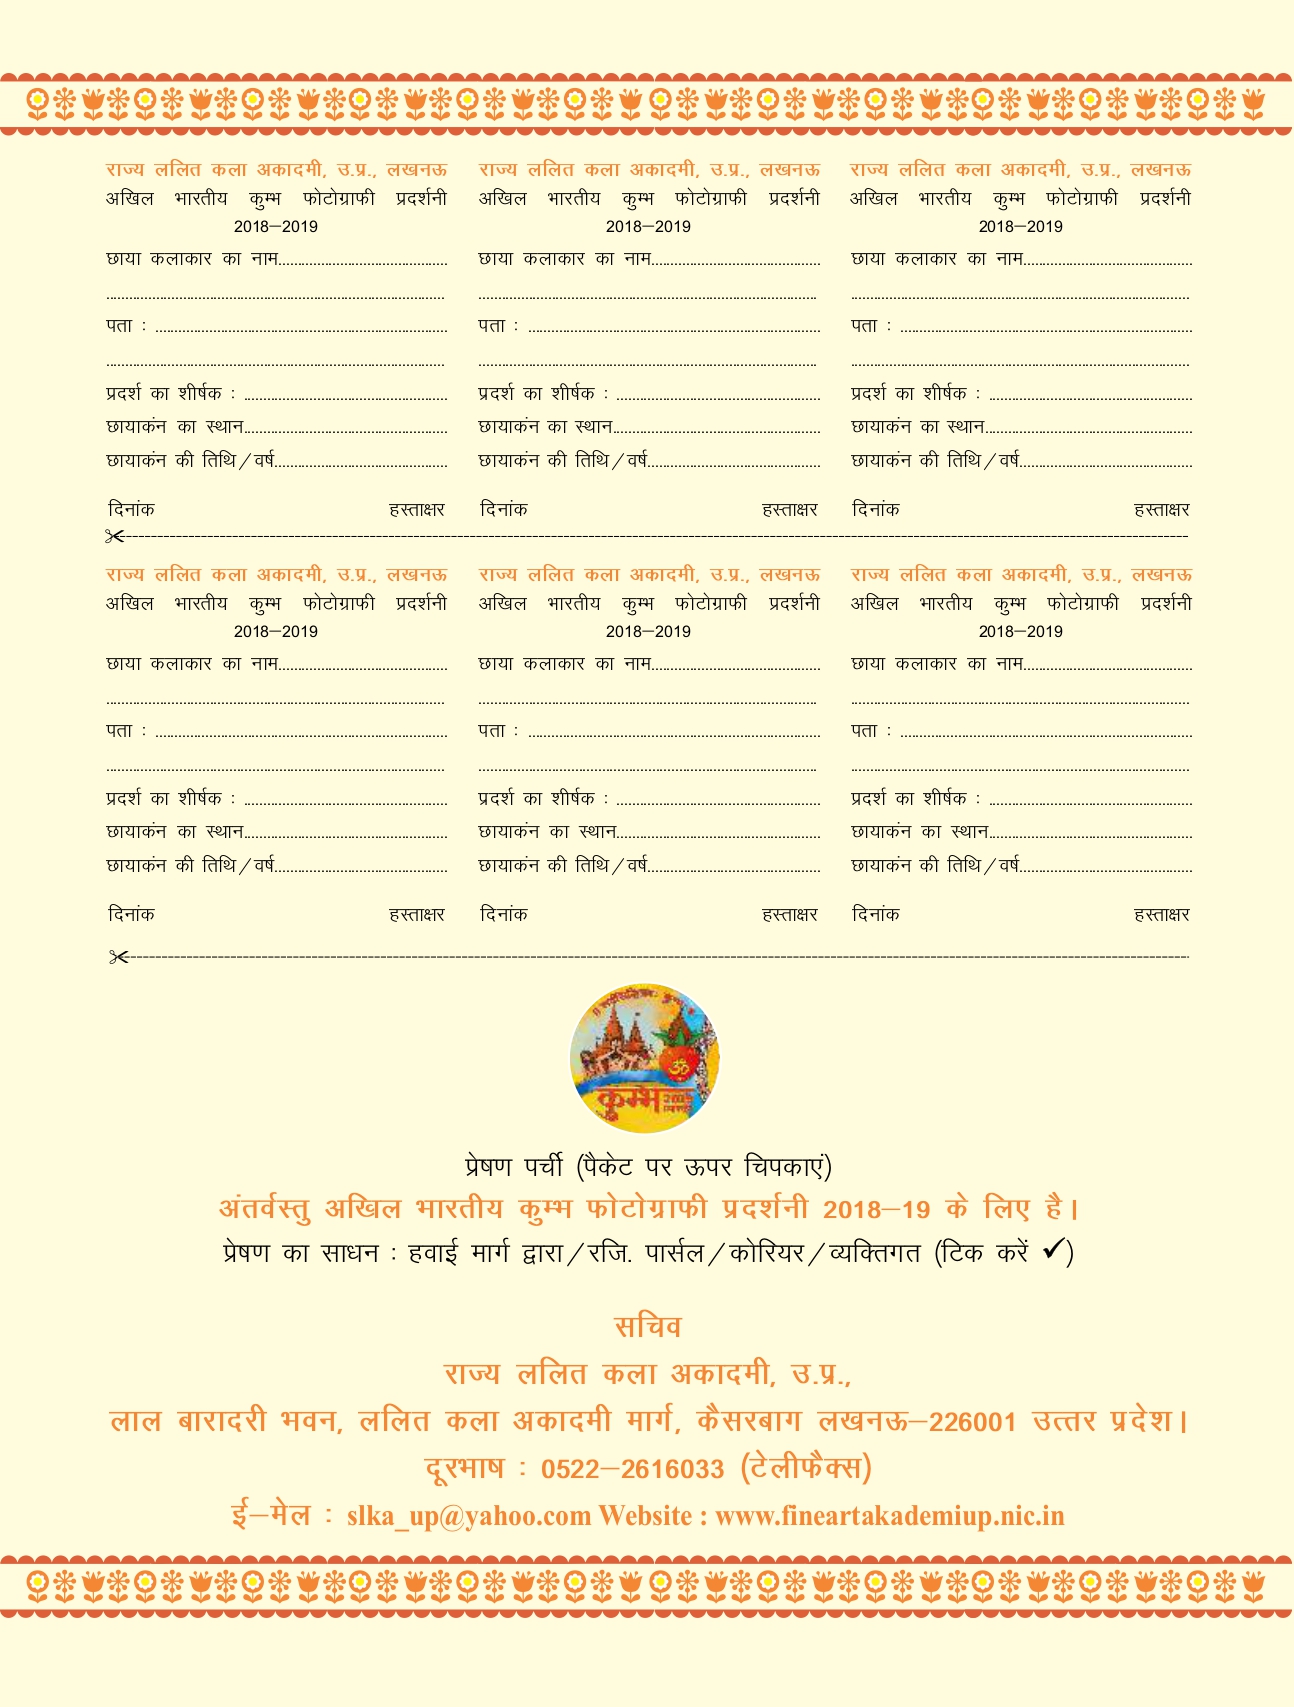 राज्य ललित कला अकादमी, उ.प्र., लखनऊ
अखिल भारतीय कुम्भ फोटोग्राफी प्रदर्शनी
2018–2019
छाया कलाकार का नाम............................................
........................................................................................
पता : ............................................................................
........................................................................................
प्रदर्श का शीर्षक : .....................................................
छायाकंन का स्थान.....................................................
छायाकंन की तिथि/वर्ष.............................................
दिनांक हस्ताक्षर
राज्य ललित कला अकादमी, उ.प्र., लखनऊ
अखिल भारतीय कुम्भ फोटोग्राफी प्रदर्शनी
2018–2019
छाया कलाकार का नाम............................................
........................................................................................
पता : ............................................................................
........................................................................................
प्रदर्श का शीर्षक : .....................................................
छायाकंन का स्थान.....................................................
छायाकंन की तिथि/वर्ष.............................................
दिनांक हस्ताक्षर
राज्य ललित कला अकादमी, उ.प्र., लखनऊ
अखिल भारतीय कुम्भ फोटोग्राफी प्रदर्शनी
2018–2019
छाया कलाकार का नाम............................................
........................................................................................
पता : ............................................................................
........................................................................................
प्रदर्श का शीर्षक : .....................................................
छायाकंन का स्थान.....................................................
छायाकंन की तिथि/वर्ष.............................................
दिनांक हस्ताक्षर
राज्य ललित कला अकादमी, उ.प्र., लखनऊ
अखिल भारतीय कुम्भ फोटोग्राफी प्रदर्शनी
2018–2019
छाया कलाकार का नाम............................................
........................................................................................
पता : ............................................................................
........................................................................................
प्रदर्श का शीर्षक : .....................................................
छायाकंन का स्थान.....................................................
छायाकंन की तिथि/वर्ष.............................................
दिनांक हस्ताक्षर
राज्य ललित कला अकादमी, उ.प्र., लखनऊ
अखिल भारतीय कुम्भ फोटोग्राफी प्रदर्शनी
2018–2019
छाया कलाकार का नाम............................................
........................................................................................
पता : ............................................................................
........................................................................................
प्रदर्श का शीर्षक : .....................................................
छायाकंन का स्थान.....................................................
छायाकंन की तिथि/वर्ष.............................................
दिनांक हस्ताक्षर
राज्य ललित कला अकादमी, उ.प्र., लखनऊ
अखिल भारतीय कुम्भ फोटोग्राफी प्रदर्शनी
2018–2019
छाया कलाकार का नाम............................................
........................................................................................
पता : ............................................................................
........................................................................................
प्रदर्श का शीर्षक : .....................................................
छायाकंन का स्थान.....................................................
छायाकंन की तिथि/वर्ष.............................................
दिनांक हस्ताक्षर
ॐ
कुम्भ
प्रेषण पर्ची (पैकेट पर ऊपर चिपकाएं)
अंतर्वस्तु अखिल भारतीय कुम्भ फोटोग्राफी प्रदर्शनी 2018–19 के लिए है।
प्रेषण का साधन : हवाई मार्ग द्वारा/रजि. पार्सल/कोरियर/व्यक्तिगत (टिक करें ✓)
सचिव
राज्य ललित कला अकादमी, उ.प्र.,
लाल बारादरी भवन, ललित कला अकादमी मार्ग, कैसरबाग लखनऊ–226001 उत्तर प्रदेश।
दूरभाष : 0522–2616033 (टेलीफैक्स)
ई–मेल : slka_up@yahoo.com Website : www.fineartakademiup.nic.in